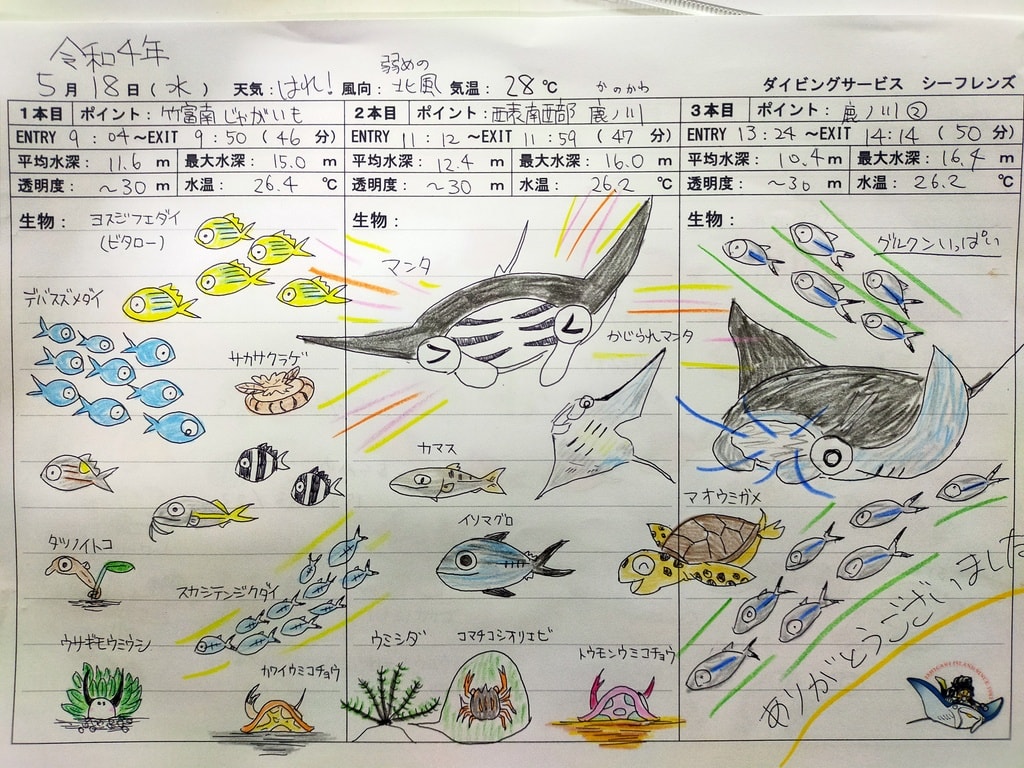 令和4年
5月18日(水) 天気:はれ! 風向:弱めの北風 気温:28℃ ダイビングサービス シーフレンズ
1本目 ポイント:竹富南じゃがいも
ENTRY 9:04~EXIT 9:50(46分)
平均水深:11.6m 最大水深:15.0m
透明度:~30m 水温:26.4℃
生物:
ヨスジフエダイ
(ビタロー)
デバスズメダイ
サカサクラゲ
タツノイトコ
スカシテンジクダイ
ウサギモウミウシ
カワイウミコチョウ
2本目 ポイント:西表南西部 鹿ノ川
かのかわ
ENTRY 11:12~EXIT 11:59(47分)
平均水深:12.4m 最大水深:16.0m
透明度:~30m 水温:26.2℃
生物:
マンタ
かじられマンタ
カマス
イソマグロ
ウミシダ
コマチコシオリエビ
トウモンウミコチョウ
3本目 ポイント:鹿ノ川②
ENTRY 13:24~EXIT 14:14(50分)
平均水深:10.4m 最大水深:16.4m
透明度:~30m 水温:26.2℃
生物:
グルクンいっぱい
アオウミガメ
ありがとうございました